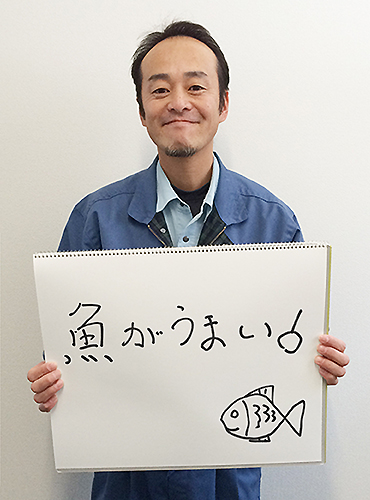 魚がうまい6